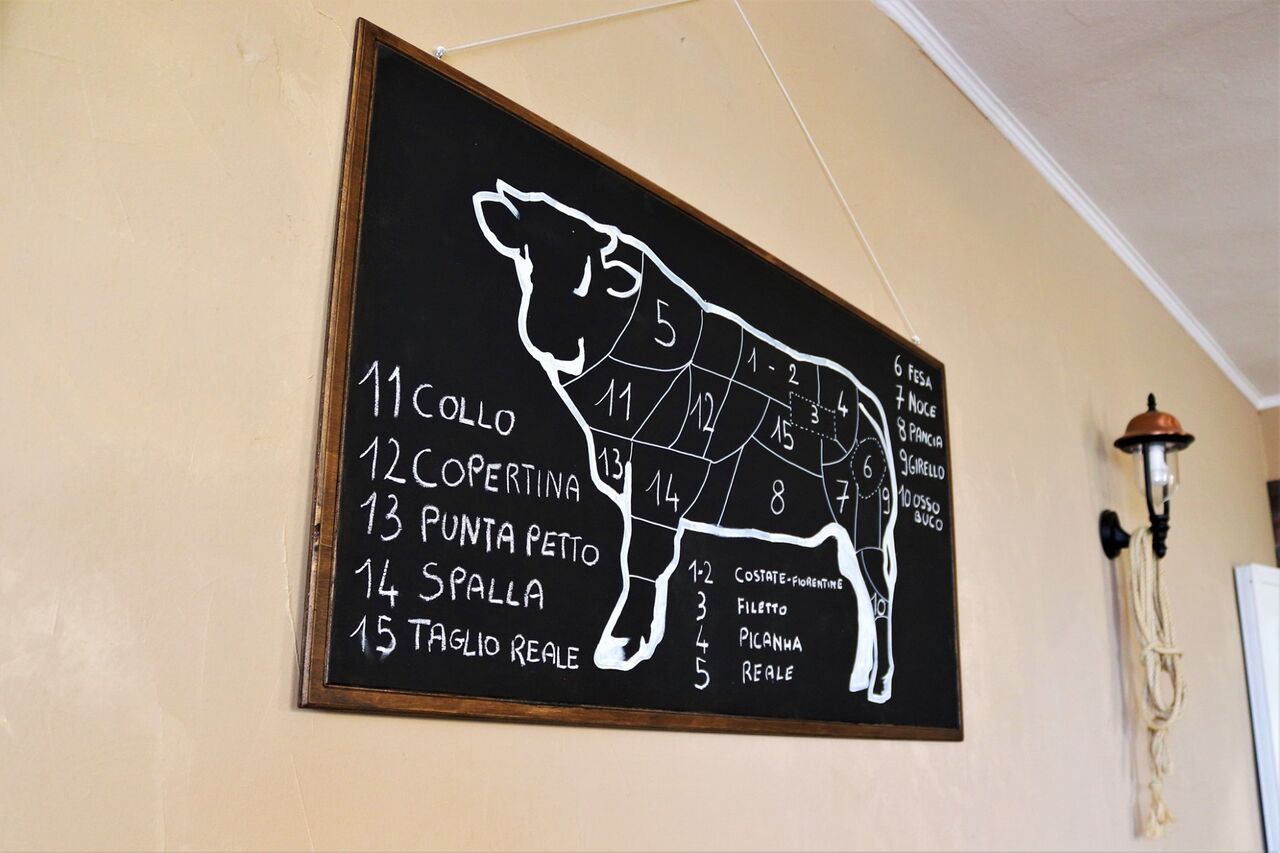 11 COLLO
12 COPERTINA
13 PUNTA PETTO
14 SPALLA
15 TAGLIO REALE
5
1 - 2
4
3
11
12
15
6
13
14
8
7
9
10
1-2 COSTATE-FIORENTINE
3 FILETTO
4 PICANHA
5 REALE
6 FESA
7 NOCE
8 PANCIA
9 GIRELLO
10 OSSO
BUCO